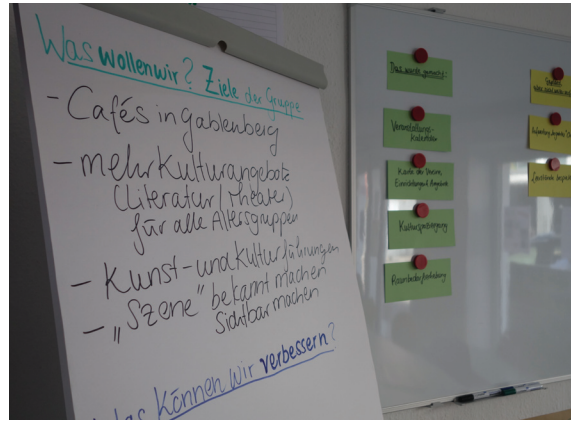 Was wollen wir? Ziele der Gruppe
- Cafés in Gablenberg
- mehr Kulturangebote
(Literatur/Theater)
für alle Altersgruppen
- Kunst- und Kulturführungen
- „Szene" bekannt machen
sichtbar machen
Was können wir verbessern?
Das wurde gemacht:
Veranstaltungs-
kalender
Karte der Vereine,
Einrichtungen & Angebote
Kulturspaziergang